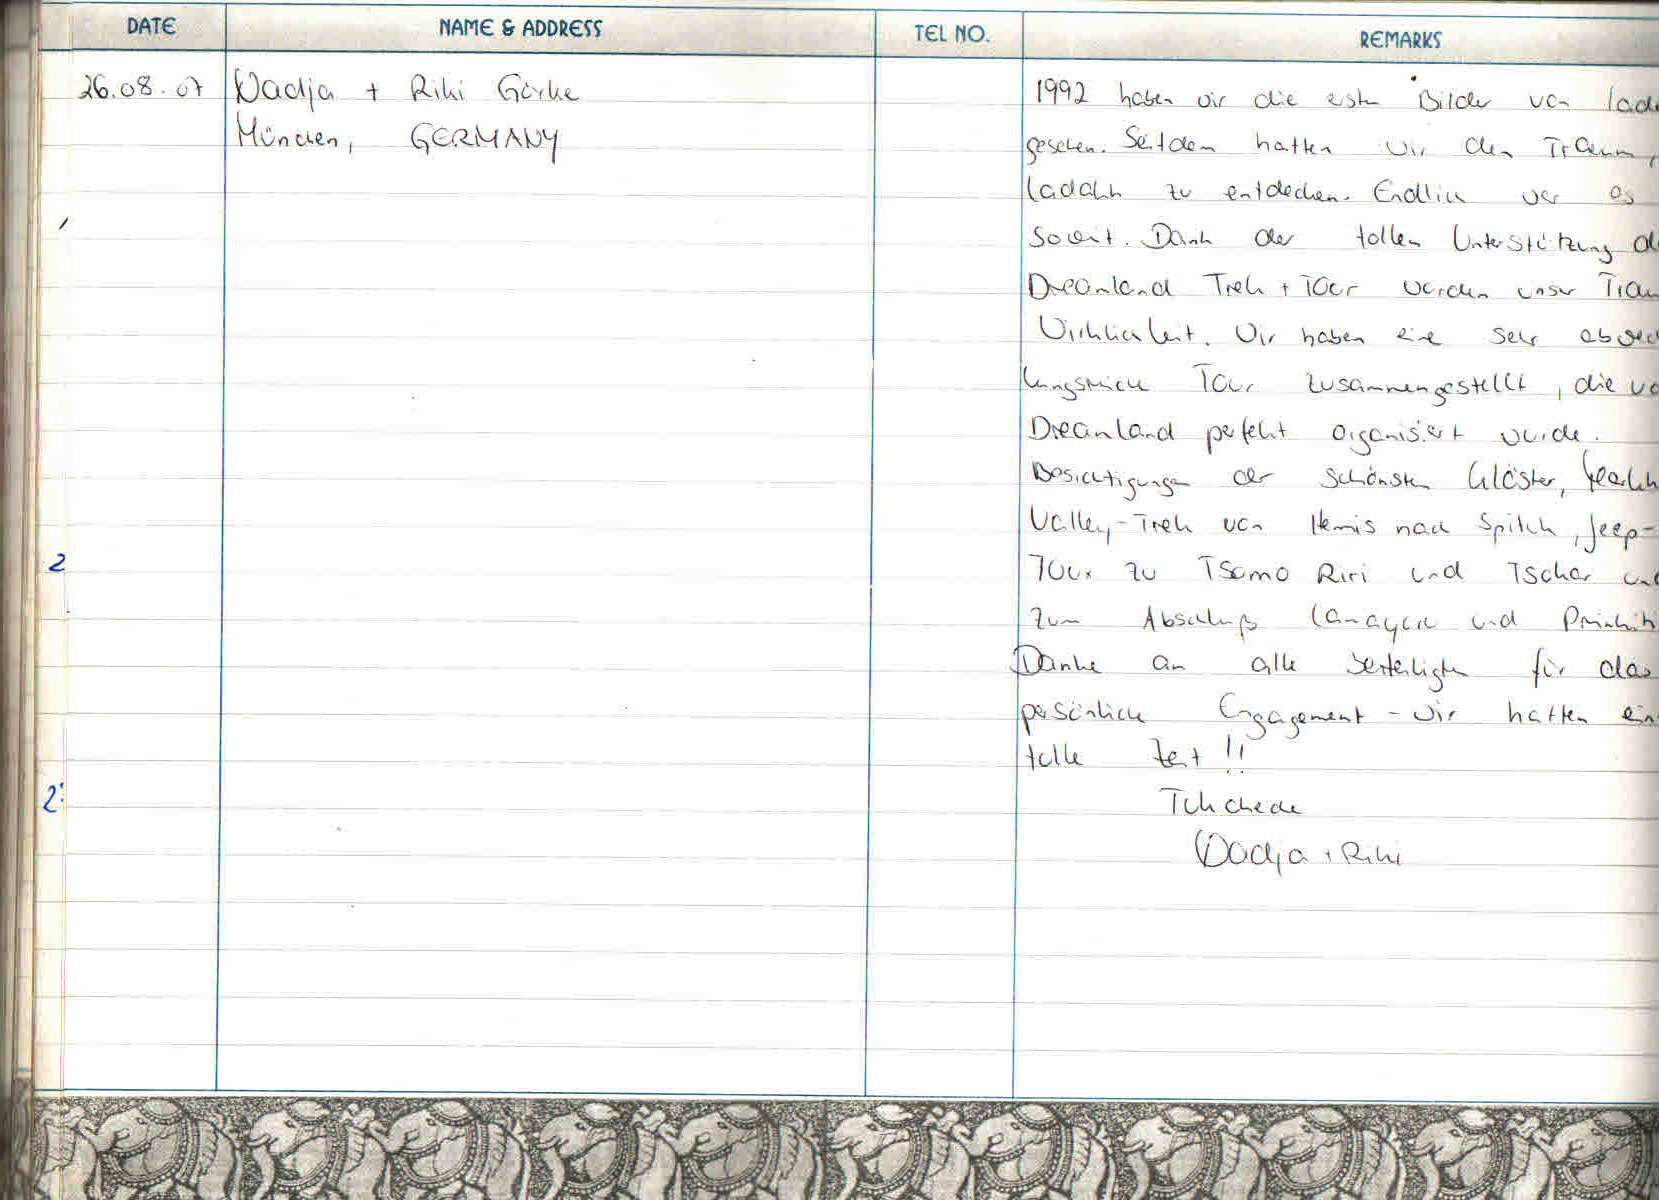 DATE NAME & ADDRESS TEL NO. REMARKS
26.08.07 Dadja + Riki Görke
München, GERMANY
1992 haben wir die ersten Bilder von lada
gesehen. Seitdem hatten wir den Traum,
Ladakh zu entdecken. Endlich war es
soweit. Dank der tollen Unterstützung
Dreamland Trek + Tour wurden unser Trau
Wirklichkeit. Wir haben eine sehr abwec
lungsreiche Tour zusammengestellt, die vo
Dreamland perfekt organisiert wurde.
Besichtigungen der schönsten Klöster,
Valley-Trek von Hemis nach Spituk, Jeep-
Tour zu Tsomo Riri und Tsokar un
zum Abschluß Lamayuru und
Danke an alle beteiligten für das
persönliche Engagement - wir hatten ein
tolle Zeit!!
Dadja + Riki
2
2